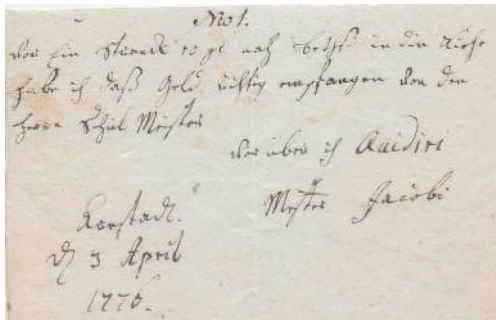 No 1.
vor Ein Strenck 10 gl nach in die
habe ich daß Geld richtig empfangen von den
Herrn Schul Meister
vor über ich Quidiri
Meister Jacobi
Arnstadt.
d 3 April
1776.